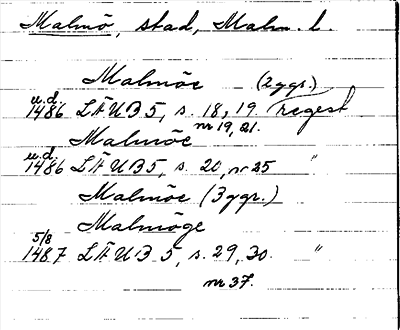 Malmö, stad, Malm. l.
Malmöe (2 ggr.)
u.d.
1486 LÄUB 5, s. 18, 19. regest
nr 19, 21.
Malmöe
u.d.
1486 LÄUB 5, s. 20, nr 25 "
Malmöe (3 ggr.)
Malmöge
5/8
1487 LÄUB 5, s. 29, 30. "
nr 37.